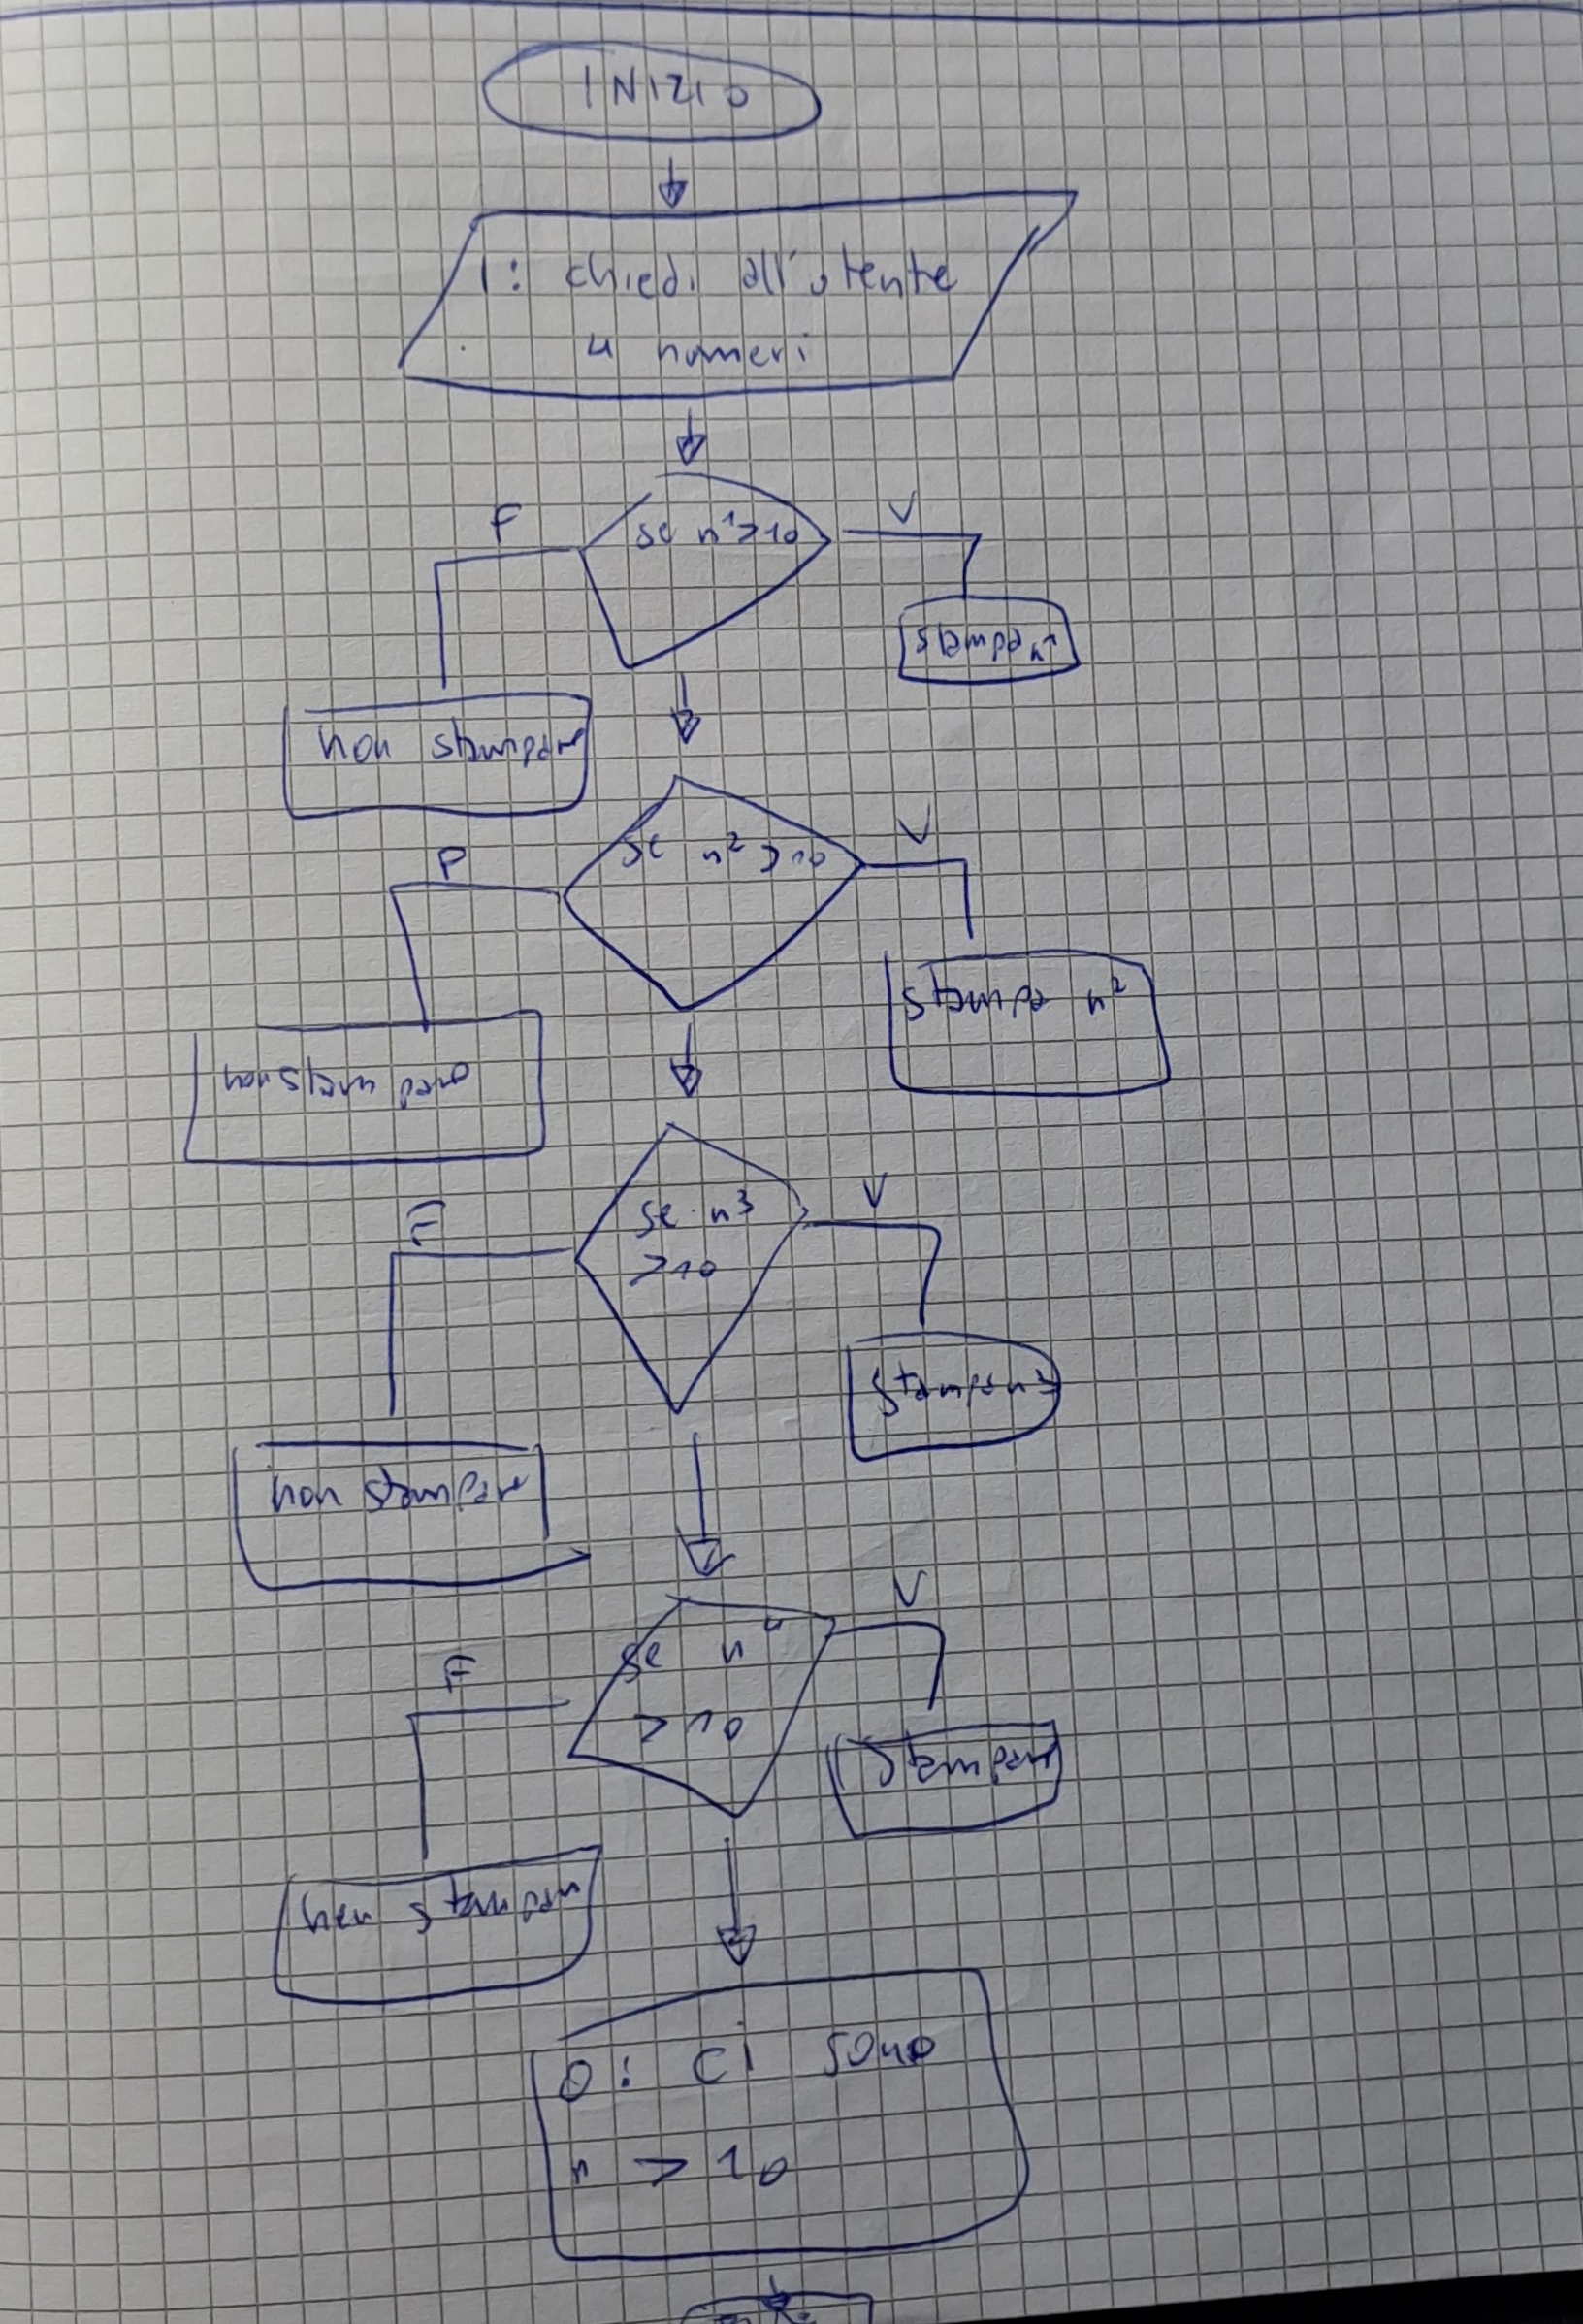 INIZIO
1: chiedi all'utente
4 numeri
F
se n¹>10
V
stampa n¹
non stampare
F
se n² >10
V
stampa n²
non stampare
F
se n³
>10
V
stampa n³
non stampare
F
se n⁴
>10
V
stampare
non stampare
O: ci sono
n > 10